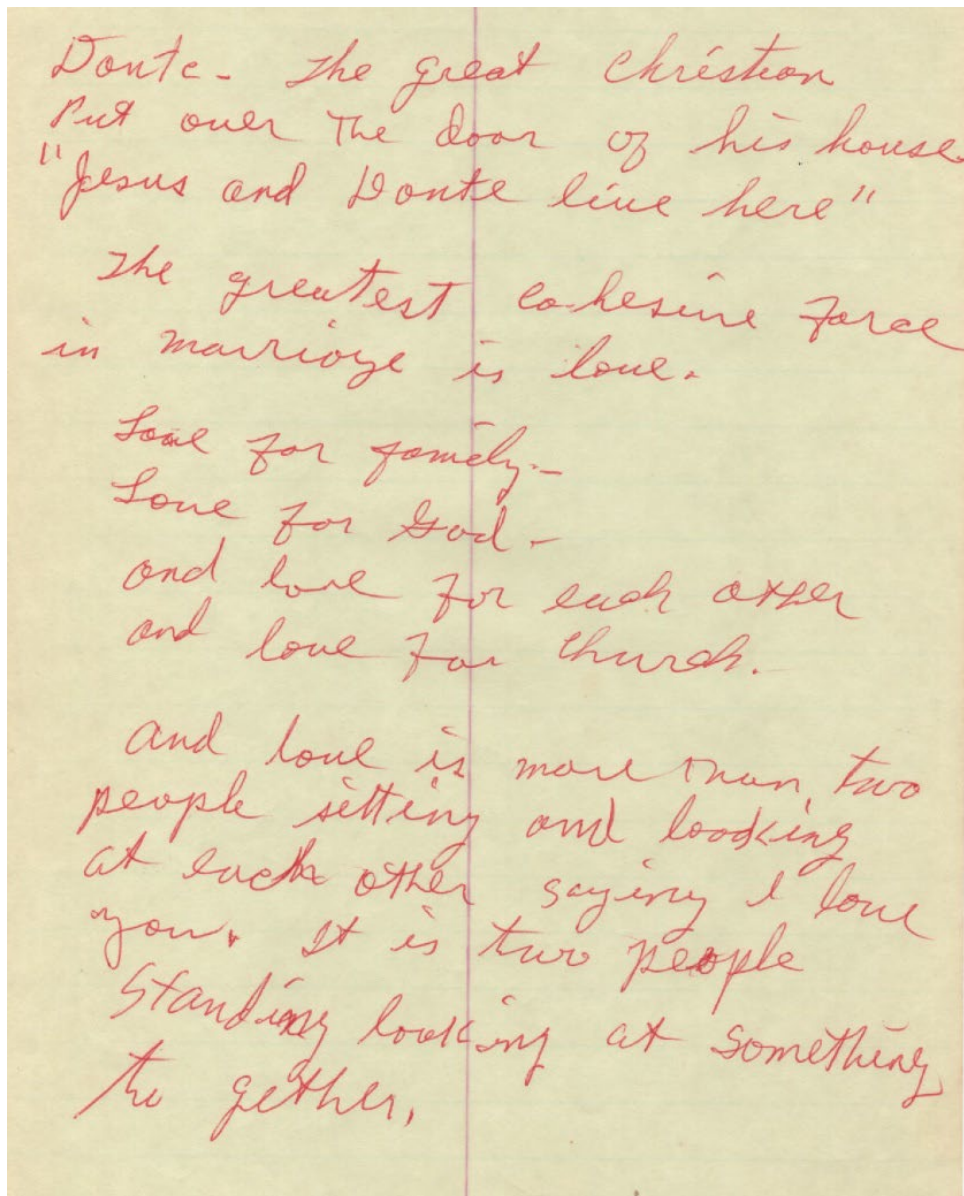 Donte - The great Christian
Put over The door of his house.
"Jesus and Donte live here"
The greatest cohesive force
in marriage is love.
Love for family -
Love for God -
and love for each other
and love for church.
and love is more than two
people sitting and looking
at each other saying I love
you. It is two people
standing looking at something
to gether.